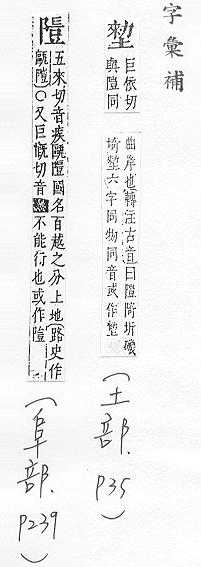 字彙補
巨依切
與隑同
曲岸也轉注古音曰隑隋圻磯
埼 六字同物同音或作
(土部. P35)
隑
五來切音疾隑國名百越之分上地路史作
隑〇又巨慨切音 不能行也或作隑
(阜部. P239)